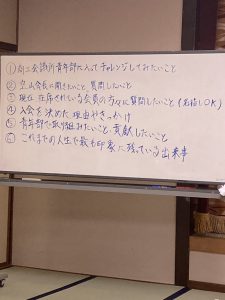 ①商工会議所青年部に入ってチャレンジしてみたいこと
②立山会長に聞きたいこと、質問したいこと
③現在 在席されている会員の方々に質問したいこと（名指しOK）
④入会を決めた理由やきっかけ
⑤青年部で取り組みたいこと、貢献したいこと
⑥これまでの人生で最も印象に残っている出来事